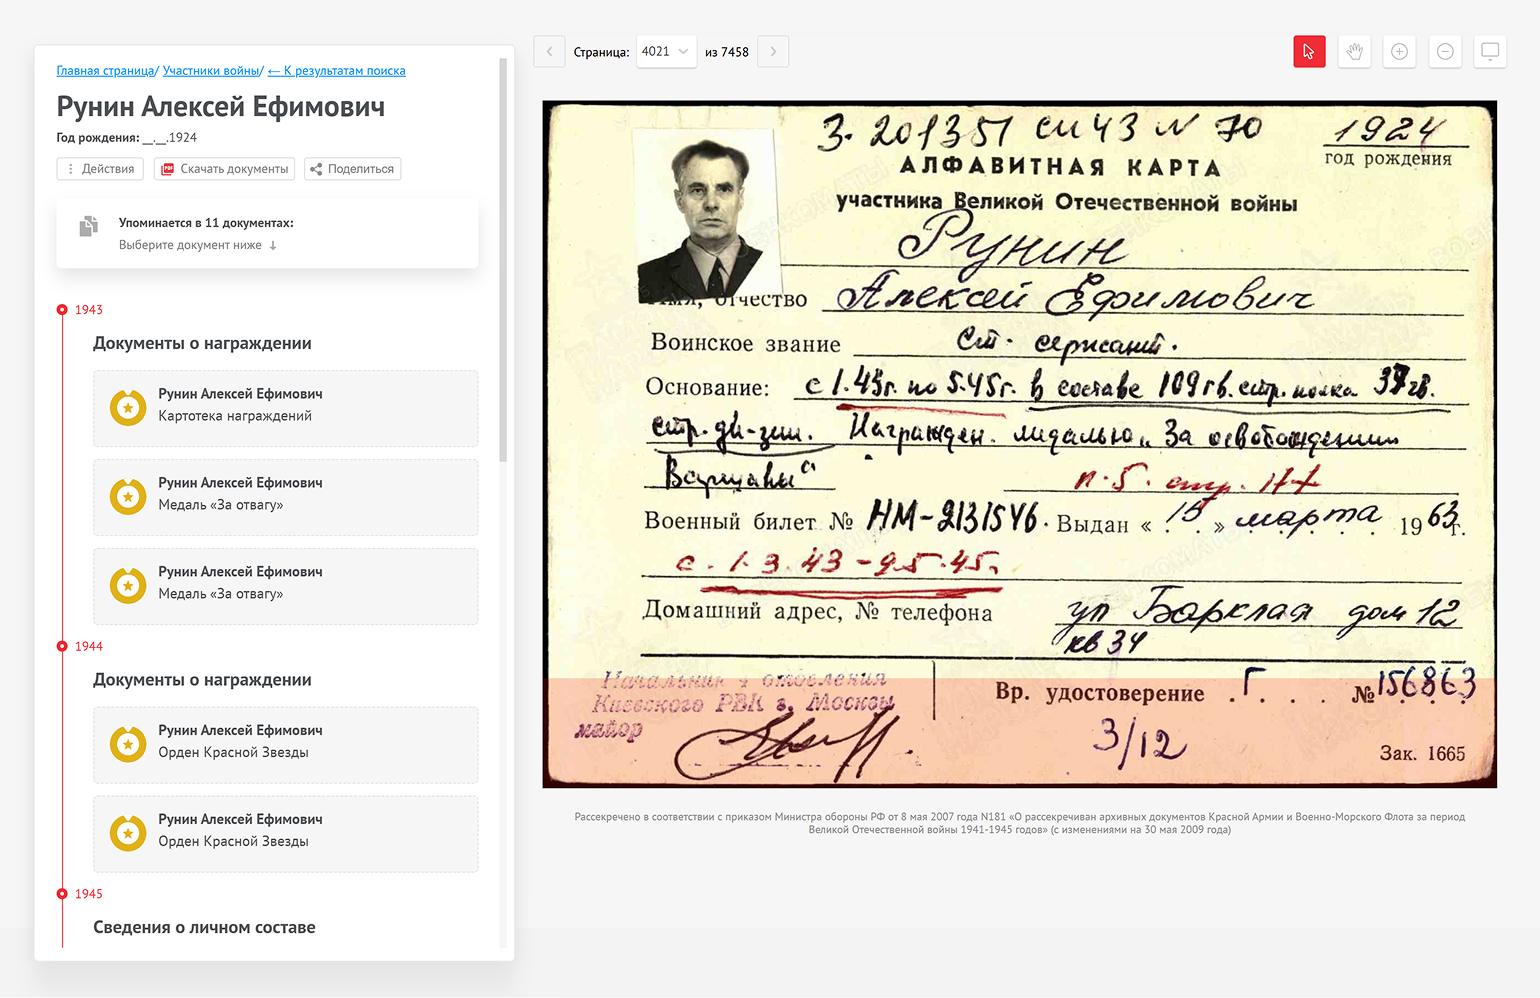 Главная страница/ Участники войны/ ← К результатам поиска
Рунин Алексей Ефимович
Год рождения: __.__.1924
Действия
Скачать документы
Поделиться
Упоминается в 11 документах:
Выберите документ ниже ↓
1943
Документы о награждении
Рунин Алексей Ефимович
Картотека награждений
Рунин Алексей Ефимович
Медаль «За отвагу»
Рунин Алексей Ефимович
Медаль «За отвагу»
1944
Документы о награждении
Рунин Алексей Ефимович
Орден Красной Звезды
Рунин Алексей Ефимович
Орден Красной Звезды
1945
Сведения о личном составе
Страница: 4021 из 7458
З. 201351 си 43 N 70
1924
год рождения
АЛФАВИТНАЯ КАРТА
участника Великой Отечественной войны
Рунин
Имя, отчество Алексей Ефимович
Воинское звание Ст. сержант.
Основание: с 1.43г. по 5.45г. в составе 109 гв. стр. полка 37 гв.
стр. див-зии. Награжден. медалью „За освобождение
Варшавы"
п. 5. стр. 177
Военный билет № НМ-2131546. Выдан « 15 » марта 1963г.
с. 1. 3. 43 - 9.5.45г.
Домашний адрес, № телефона ул Барклая дом 12
кв 34
Начальник 4 отделения
Киевского РВК г. Москвы
майор
Вр. удостоверение . Г . . . №156863
3/12
Зак. 1665
Рассекречено в соответствии с приказом Министра обороны РФ от 8 мая 2007 года N181 «О рассекречиван архивных документов Красной Армии и Военно-Морского Флота за период
Великой Отечественной войны 1941-1945 годов» (с изменениями на 30 мая 2009 года)